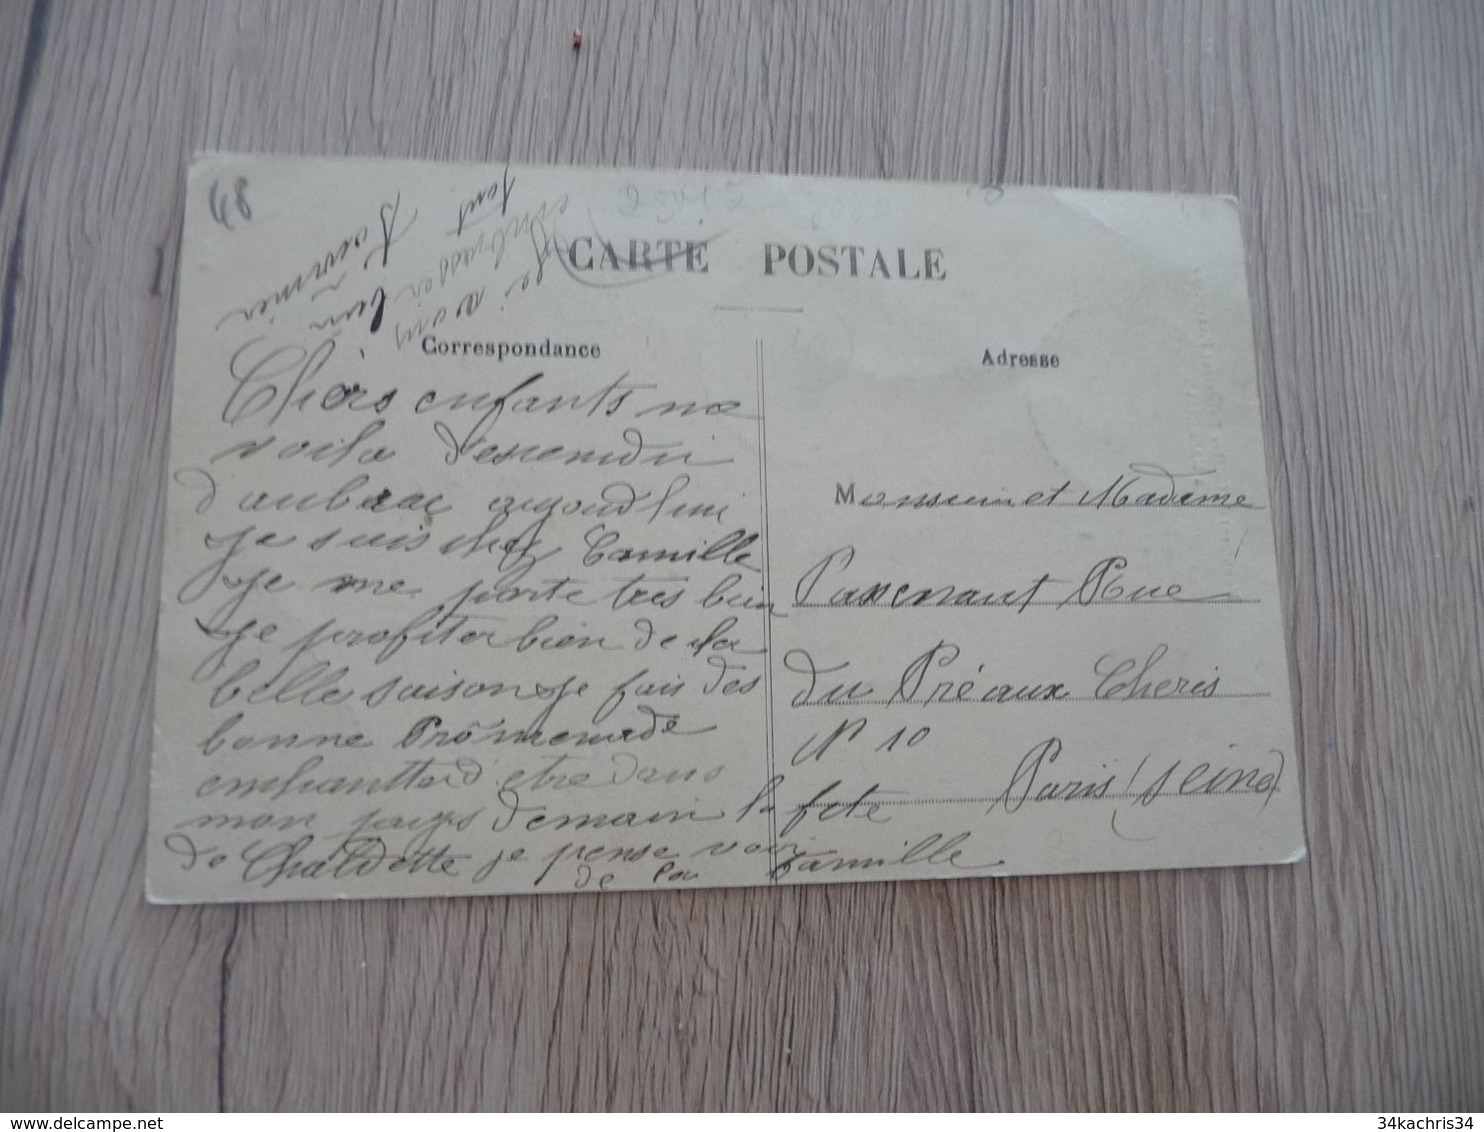 48
CARTE POSTALE
Correspondance
Adresse
Je vous
embrasser bien
fort
Chers enfants me
voila dessendu
d'aubrac aujourd'hui
je suis chez Camille
je me porte tres bien
je profiter bien de la
belle saison je fais des
bonne Prômenade
enchantterd etre dans
mon pays demain la fete
de Chaldette je pense voir
de la famille
Monsieur et Madame
Passenaut Rue
du Préaux Cheris
N 10
Paris (seine)
34kachris34